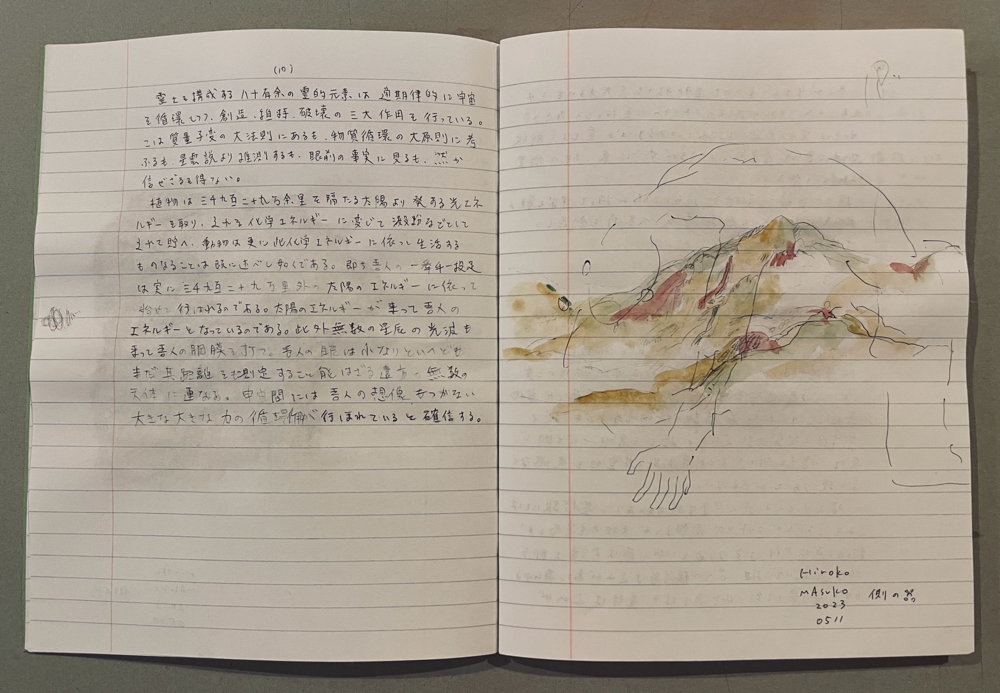 (10)
霊土を構成する八十有余の霊的元素は週期律的に宇宙
を循環しつつ、創造、維持、破壊の三大作用を行っている。
こは質量不変の大法則にあるも、物質循環の大原則に考
ふるも、星雲説より推測するも、眼前の事実に見るも、然か
信ぜざるを得ない。
植物は三千九百二十九万余里を隔たる太陽より発する光エネ
ルギーを取り、之れを化学エネルギーに変じて澱粉などとして
之れを貯へ、動物は更に此化学エネルギーに依つて生活する
ものなることは既に述べし如くである。即ち吾人の一挙手一投足
は実に三千九百二十九万里外の太陽のエネルギーに依って
始めて行はれるのである。太陽のエネルギーが来って吾人の
エネルギーとなっているのである。此外無数の星辰の光波も
来って吾人の眼膜を打つ。吾人の眼は小なりといへども
まだ其距離をも測定すること能はざる遠方の無数の
天体に連なる。宇宙間には吾人の想像もつかない
大きな大きな力の循環が行はれていると確信する。
Hiroko
MASUKO
2023
0511
側の器